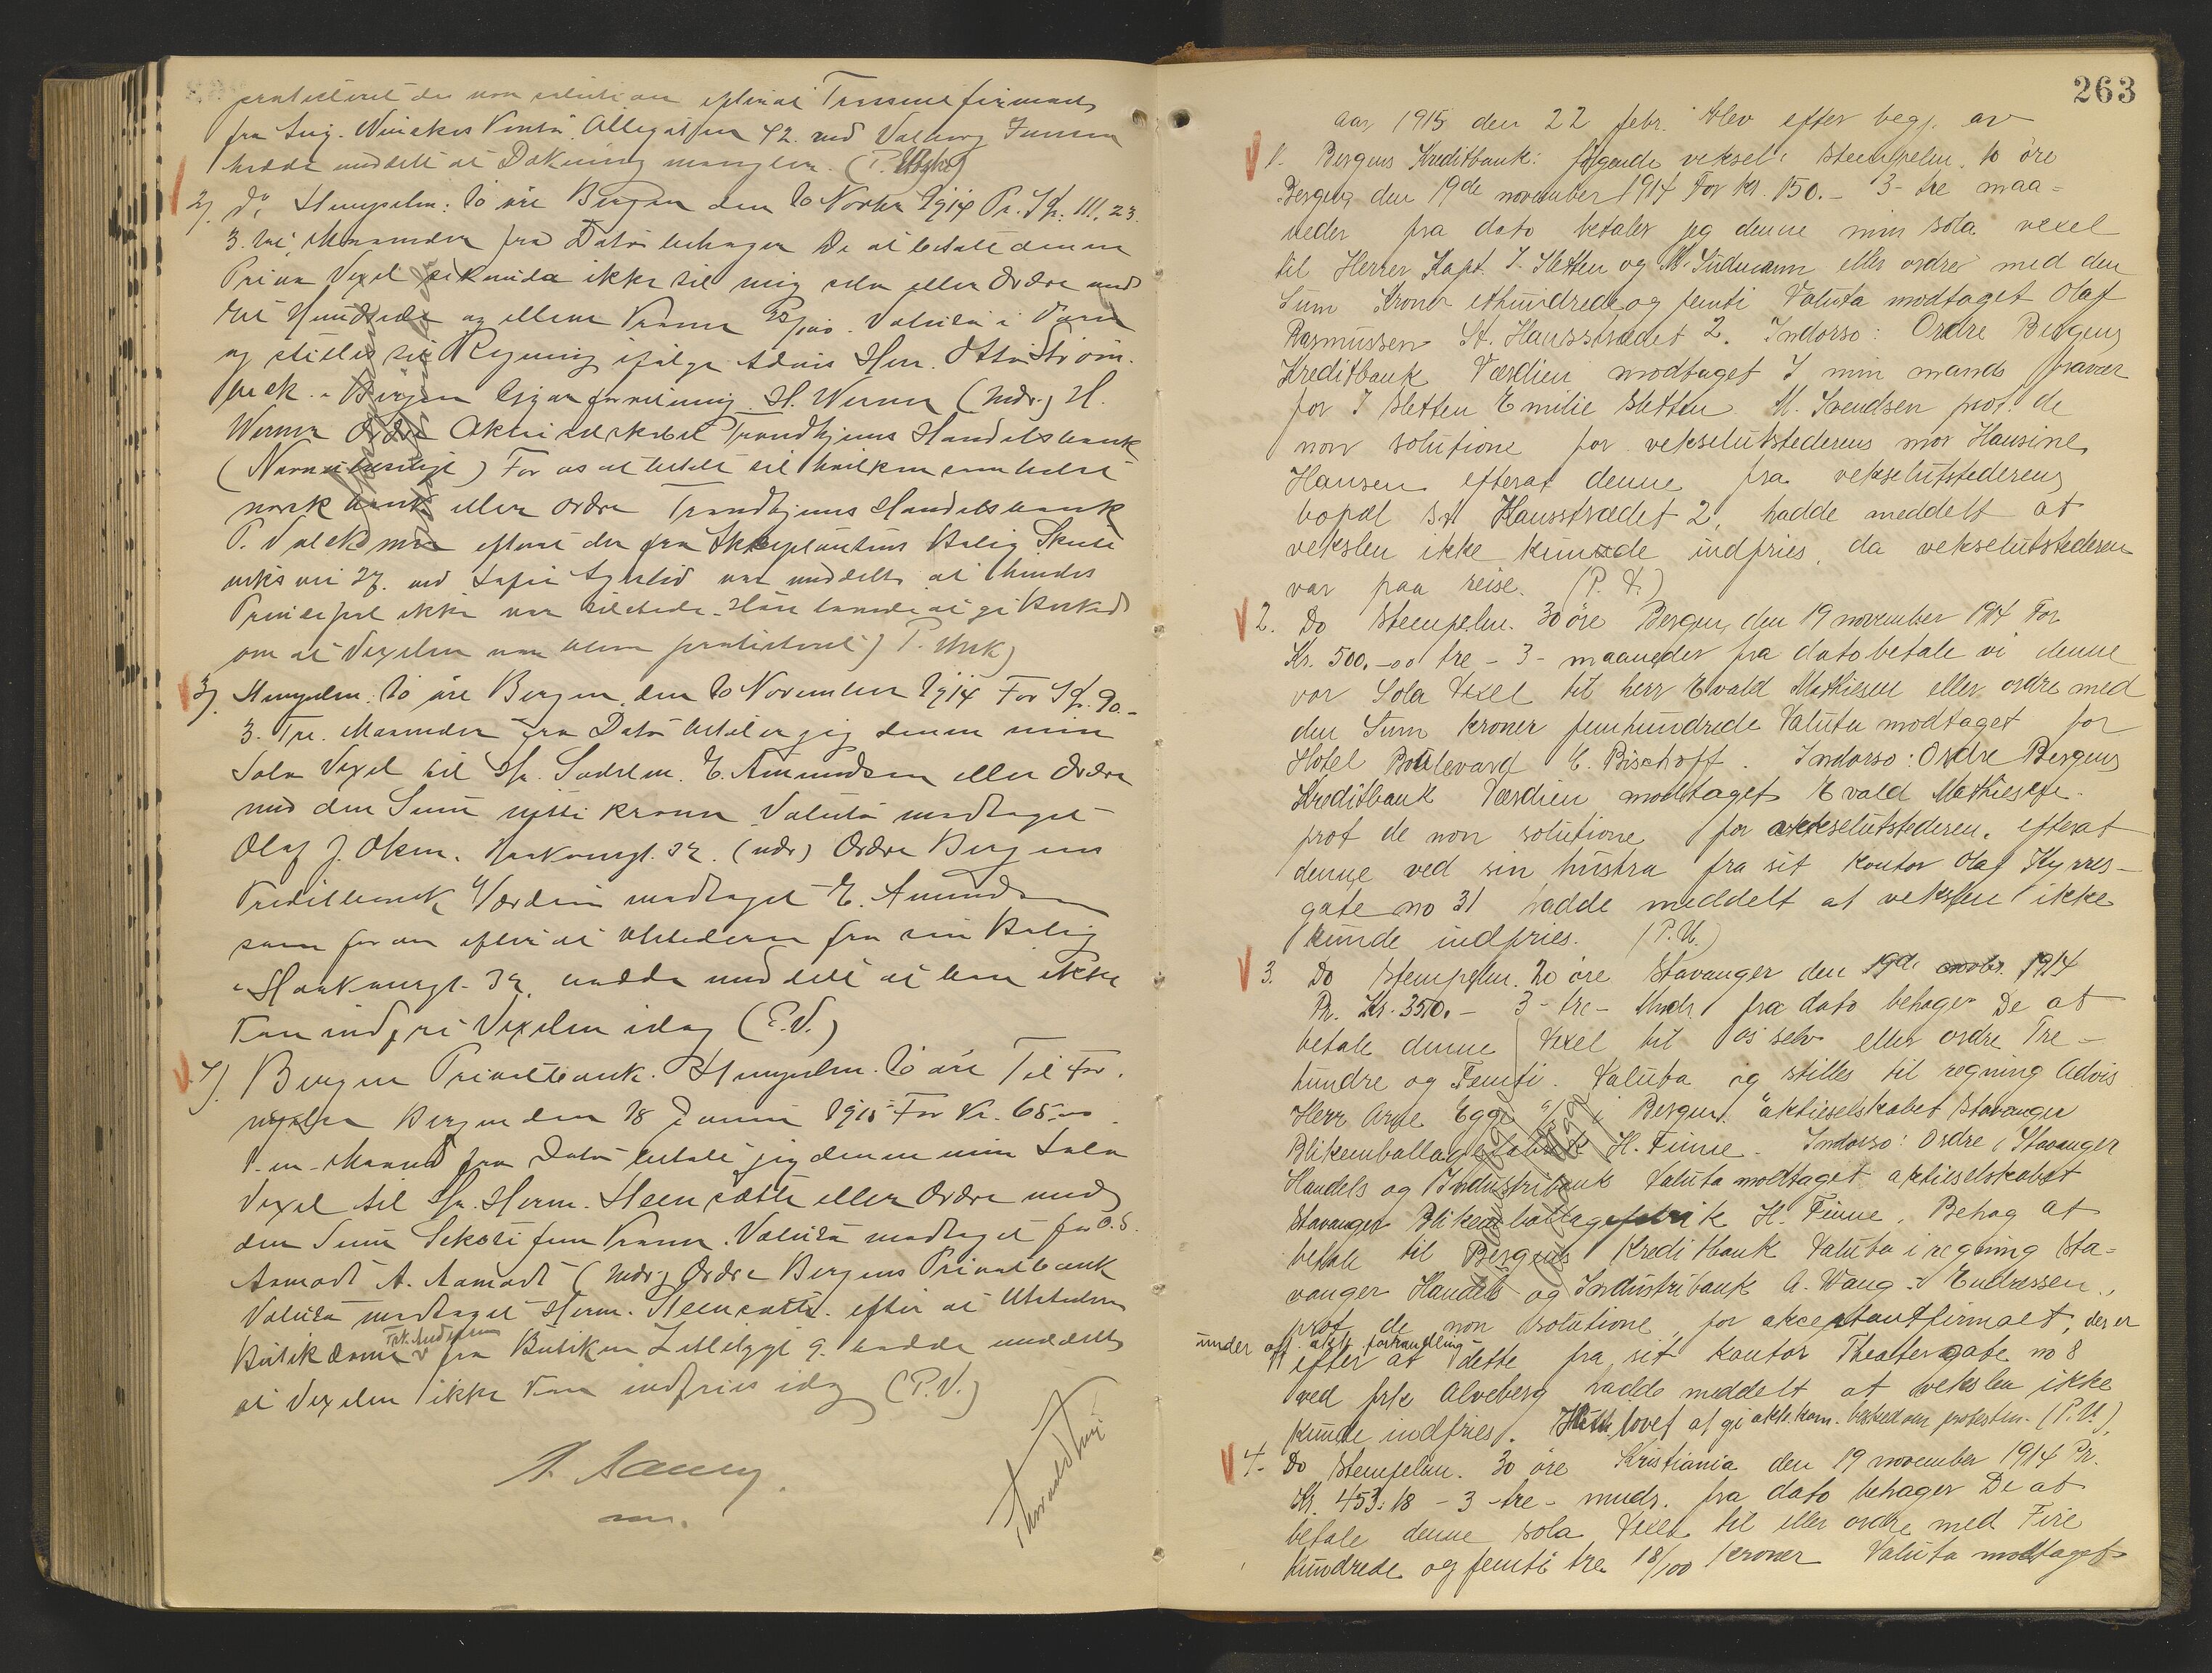 protesteret de non solutione efterat Trassentfirmaet
fra Sig. Winckes Kontor Allegaten 42. ved Valborg Jensen
hadde meddelt at Dækning mangler. (P.
2) do Stempelm: 20 øre Bergen den 20 Novbr 1914 Pr. Kr: 311,23.
3. tre Maaneder fra Dato behager De at betale denne
Prima Vexel sekunda ikke til mig selv eller Ordre med
tre Hundrede og elleve Kroner 23/100. Valuta i Varer
og stilles til Regning ifølge Advis Herr. Otto Strøm.
beck. Bergen Cigarforretning. H. Werner (Indr.) H.
Werner Ordre Aktieselskabet Trondhjems Handelsbank
( ) For os at betale til hvilken som helst
norsk bank eller ordre Trondhjems Handelsbank
P. efterat der fra Akceptantens Bolig
27. ved var meddelt at hendes
Principal ikke var tilstede. Hun lovede at gi Besked
om at Vexelen var blevet protesteret) P.
3) Stempelm: 20 øre Bergen den 20 November 1914 For Kr. 90.-
3. Tre. Maaneder fra Dato betaler jeg denne min
Sola Vexel til Hr. Sadelm. E. Amundsen eller Ordre
med den Sum nitti kroner Valuta modtaget
Olaf J. Olsen. Haakonsgt. 32. (Indr) Ordre Bergens
Kreditbank Værdien modtaget E. Amundsen
som foran efter at Utstederen fra sin Bolig
Haakonsgt. 32, hadde meddelt at han ikke
kan indfri Vexelen idag (P.V.)
4) Bergens Privatbank. Stempelm. 20 øre Til For.
nyelse Bergen den 18 Januar 1915 For Kr. 65.00
1-en-Maaned fra Dato betale jeg denne min Sola
Vexel til Hr. Herm. Steensætte eller Ordre med
den Sum Seksti fem Kroner. Valuta modtaget for O.S.
Aamodt A. Aamodt (Indr.) Ordre Bergens Privatbank
Valuta modtaget Herm. Steensætte. efter at Utstederens
Frk. Andersen
Butikdame fra Butiken 9. hadde meddelt
at Vexelen ikke kan indfries idag (P.V.)
263
Aar 1915 den 22 febr. blev efter begj. av
1. Bergens Kreditbank: følgende veksel: Stempelm. 10 øre
Bergen den 19de november 1914 For Kr. 150.- 3- tre maa=
neder fra dato betaler jeg denne min sola vexel
til Herrer Kapt. I. Sletten og M. Sudmann eller ordre med den
Sum Kroner ethundrede og femti Valuta modtaget Olaf
Rasmussen St. Hansstrædet 2. Indorso: Ordre Bergens
Kreditbank Værdien modtaget I min mands fravær
for I Sletten Emilie Sletten. M. Svendsen prot. de
non solutione for vekselutstederens mor Hansine
Hansen efterat denne fra vekselutstederens
bopæl St. Hansstrædet 2, hadde meddelt at
vekslen ikke kunde indfries, da vekselutstederen
var paa reise. (P.V.)
2. Do Stempelm. 30 øre Bergen den 19 november 1914 For
Kr. 500.-00 tre - 3 - maaneder fra dato betale vi denne
vor Sola Vexel til herr Evald Mathiesen eller ordre med
den Sum kroner femhundrede Valuta modtaget for
Hotel Boulevard E. Bischoff. Indorso: Ordre Bergens
Kreditbank Værdien modtaget Evald Mathiesen.
prot de non solutione for vekselutstederen. efterat
denne ved sin hustru fra sit kontor Olaf Kyrres-
gate no 31 hadde meddelt at vekslen ikke
kunde indfries. (P.V.)
3. Do Stempelm. 20 øre Stavanger den 19de novbr. 1914
Pr. Kr. 350.- 3 - tre - Mndr. fra dato behager De at
betale denne Vexel til os selv eller ordre Tre-
hundre og Femti. Valuta og stilles til regning Advis
Herr Arne Egge i Bergen. Aktieselskabet Stavanger
Blikemballagefabrik H. Finne. Indorso: Ordre Stavanger
Handels og Industribank Valuta modtaget aktieselskabet
Stavanger Blikemballagefabrik H. Finne. Behag at
betale til Bergens Kreditbank Valuta i regning Sta=
vanger Handels og Industribank A. Wang. Endressen.,
prot de non solutione, for akceptantfirmaet, der er
under off. akk. forhandling
efter at dette fra sit kontor Theatergate no 8
ved frk Alveberg hadde meddelt at vekslen ikke
kunde indfries. lovet at gi akk.kom. besked om protesten. (P.V.)
4. Do Stempelm. 30 øre Kristiania den 19 november 1914 Pr.
Kr. 453:18 - 3 - tre - mndr. fra dato behager De at
betale denne sola Vexel til eller ordre med Fire
hundrede og femti tre 18/100 kroner Valuta modtaget